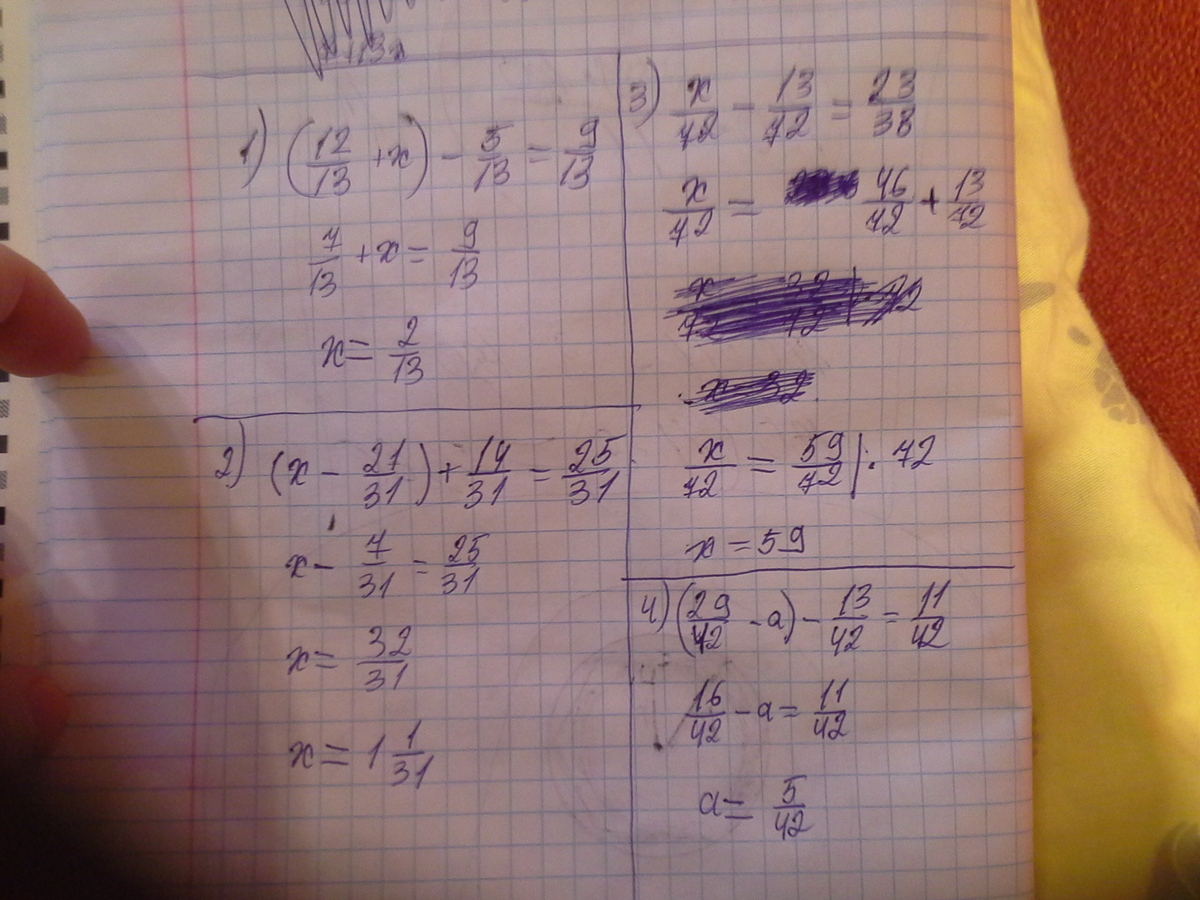 1) (12/13 + x) - 5/13 = 9/13
7/13 + x = 9/13
x = 2/13
2) (x - 21/31) + 14/31 = 25/31
x - 7/31 = 25/31
x = 32/31
x = 1 1/31
3) x/72 - 13/72 = 23/38
x/72 = 46/72 + 13/72
x/72 = 59/72 | · 72
x = 59
4) (29/42 - a) - 13/42 = 11/42
16/42 - a = 11/42
a = 5/42